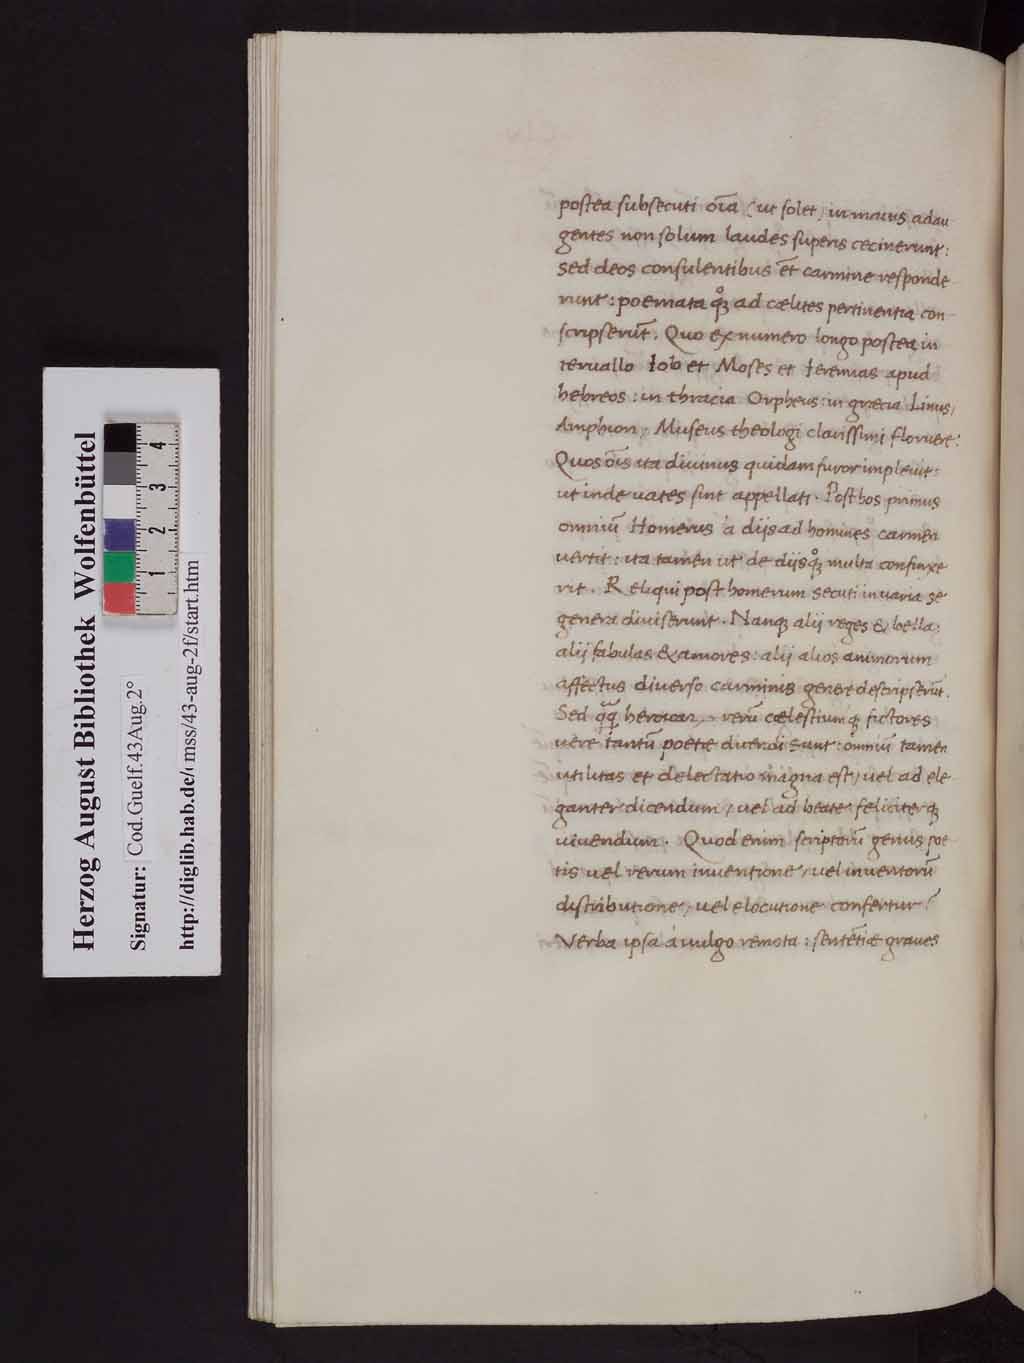 Herzog August Bibliothek Wolfenbüttel
Signatur: Cod.Guelf.43Aug.2°
http://diglib.hab.de/ mss/43-aug-2f/start.htm
1 2 3 4
postea subsecuti oīa (ut solet) in maius adau
gentes non solum laudes superis cecinerunt:
sed deos consulentibus et̄ carmine responde
runt: poemata qꝫ ad cælites pertinentia con
scripserūt. Quo ex numero longo postea in
teruallo Iob et Moses et Ieremias apud
hebreos: in thracia Orpheus: in græcia Linus,
Amphion, Museus theologi clarissimi floruere:
Quos oīs ita diuinus quidam furor impleuit:
ut inde uates sint appellati. Post hos primus
omniū Homerus à diis ad homines carmen
uertit: ita tamen ut de diis qꝫ multa confinxe
rit. Reliqui post homerum secuti in uaria se
genera diuiserunt. Nanqꝫ alij reges & bella:
alij fabulas & amores: alij alios animorum
affectus diuerso carminis genere descripserūt.
Sed qq̄ rerū cælestium qꝫ fictores
uere tantū poetæ dicendi sunt: omniū tamen
utilitas et delectatio magna est, uel ad ele
ganter dicendum, uel ad beate feliciter qꝫ
uiuendum. Quod enim scriptorū genus poe
tis uel rerum inuentione, uel inuentorū
distributione, uel elocutione confertur?
Verba ipsa à uulgo remota: sentētiæ graues